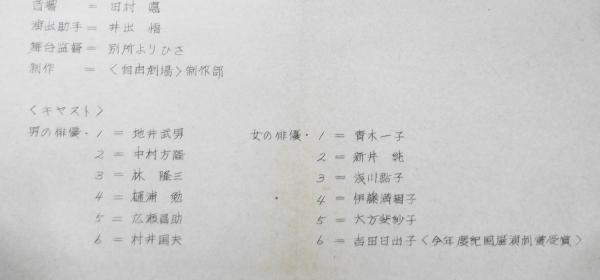 音響 = 田村 悳
演出助手 = 井出 悟
舞台監督 = 別所よりひさ
制作 = 〈自由劇場〉制作部
〈キャスト〉
男の俳優・1 = 地井武男
2 = 中村方隆
3 = 林 隆三
4 = 樋浦 勉
5 = 広瀬昌助
6 = 村井国夫
女の俳優・1 = 青木一子
2 = 新井 純
3 = 浅川點子
4 = 伊藤満智子
5 = 大方斐紗子
6 = 吉田日出子〈今年度紀国屋演劇賞受賞〉